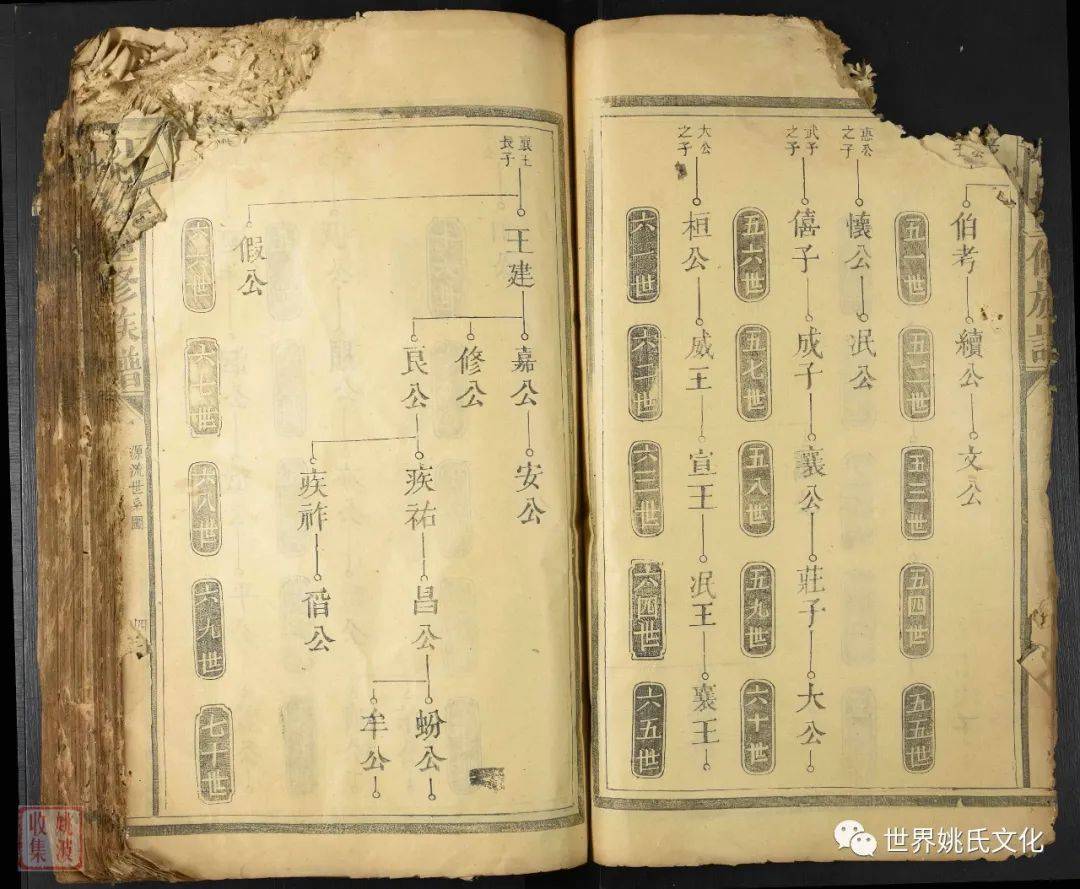 伯考
續公
文公
五一世
五二世
五三世
五四世
五五世
惠公之子
懷公
泯公
武子之子
僖子
成子
襄公
莊子
大公
五六世
五七世
五八世
五九世
六十世
大公之子
桓公
威王
宣王
泯王
襄王
六一世
六二世
六三世
六四世
六五世
襄王長子
王建
嘉公
安公
修公
良公
疾祐
昌公
蚡公
牟公
疾祚
偕公
假公
六六世
六七世
六八世
六九世
七十世
修族譜
源流世系圖
四
姚波
收集
世界姚氏文化